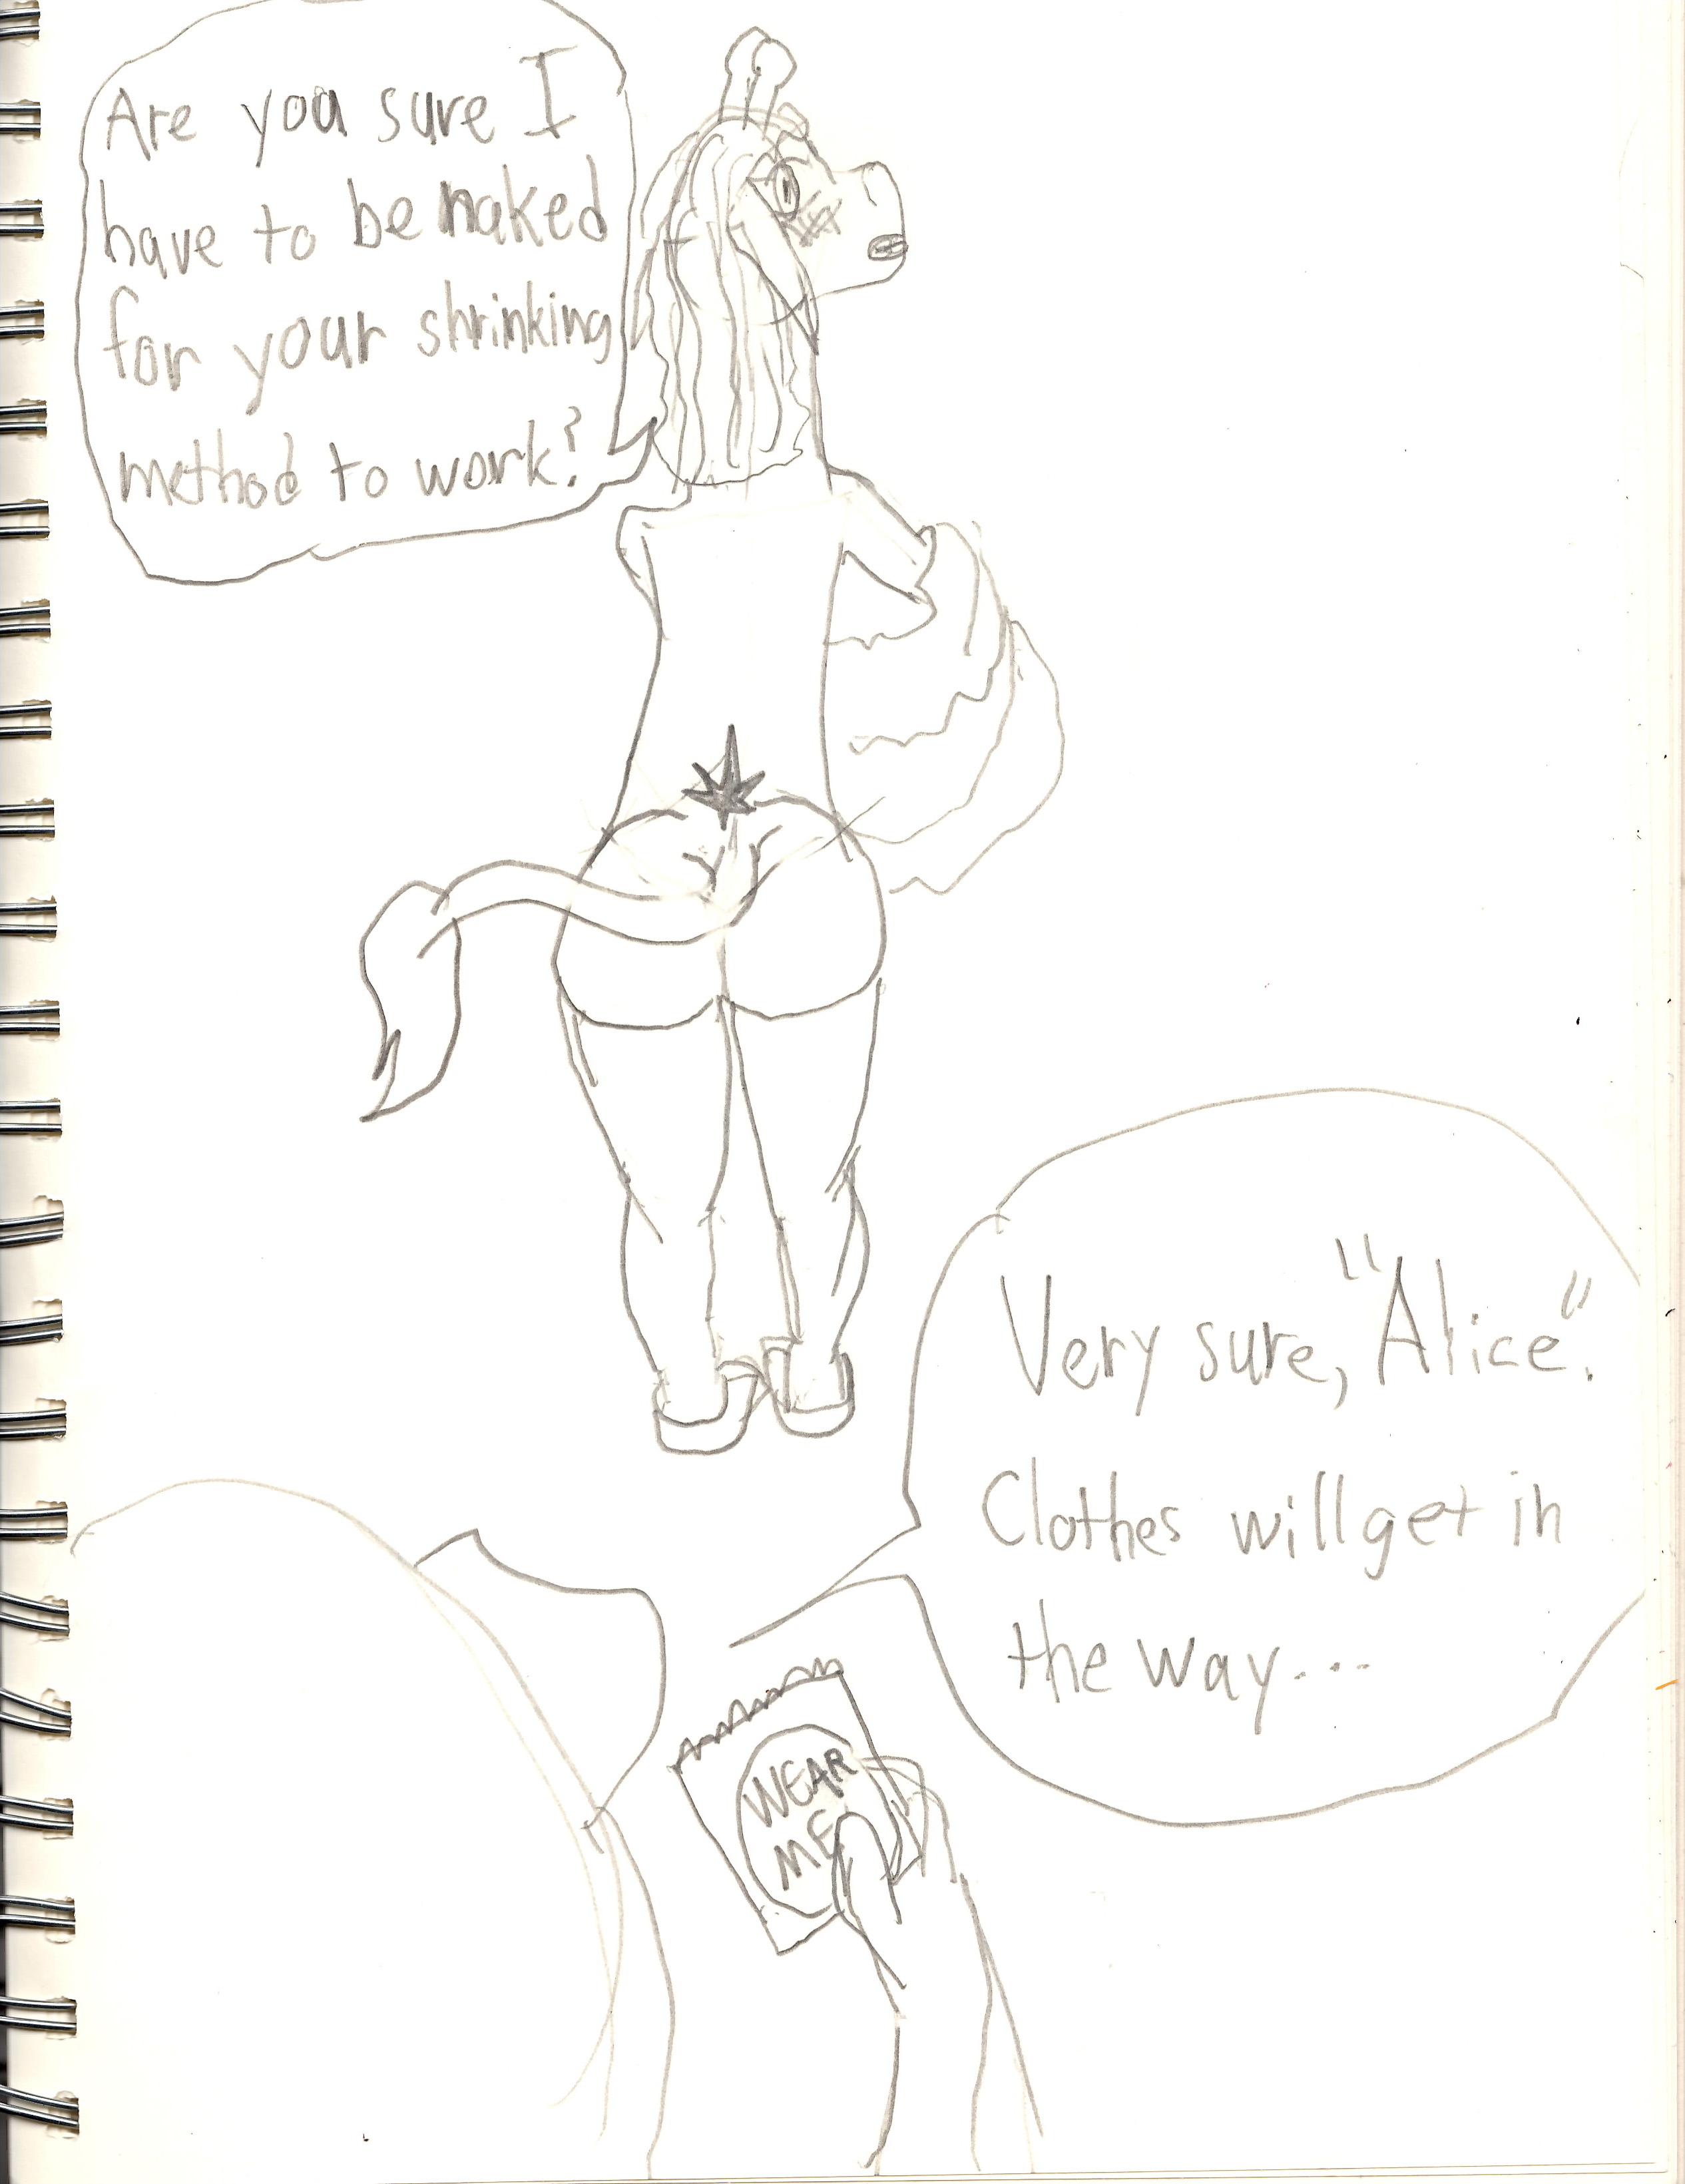 Are you sure I
have to be naked
for your shrinking
method to work?
Very sure, "Alice".
Clothes will get in
the way...
WEAR
ME